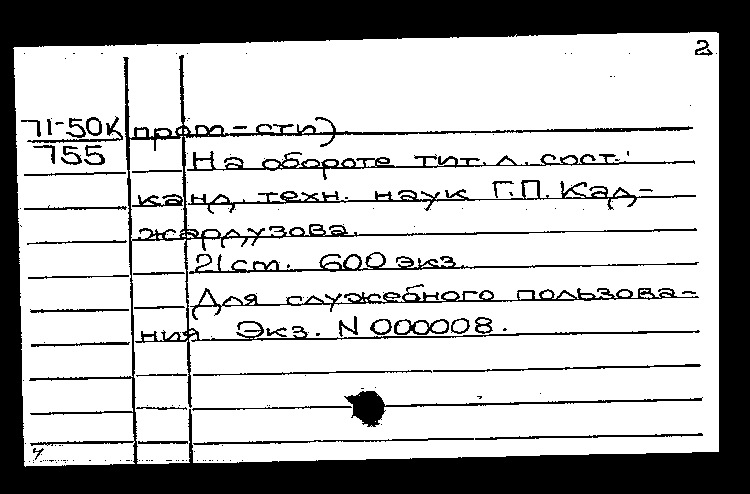 2
71-50к пром-сти)
755 На обороте тит. л. сост.:
канд. техн. наук Г.П. Кад-
жардузова.
21 см. 600 экз.
Для служебного пользова-
ния. Экз. N 000008.